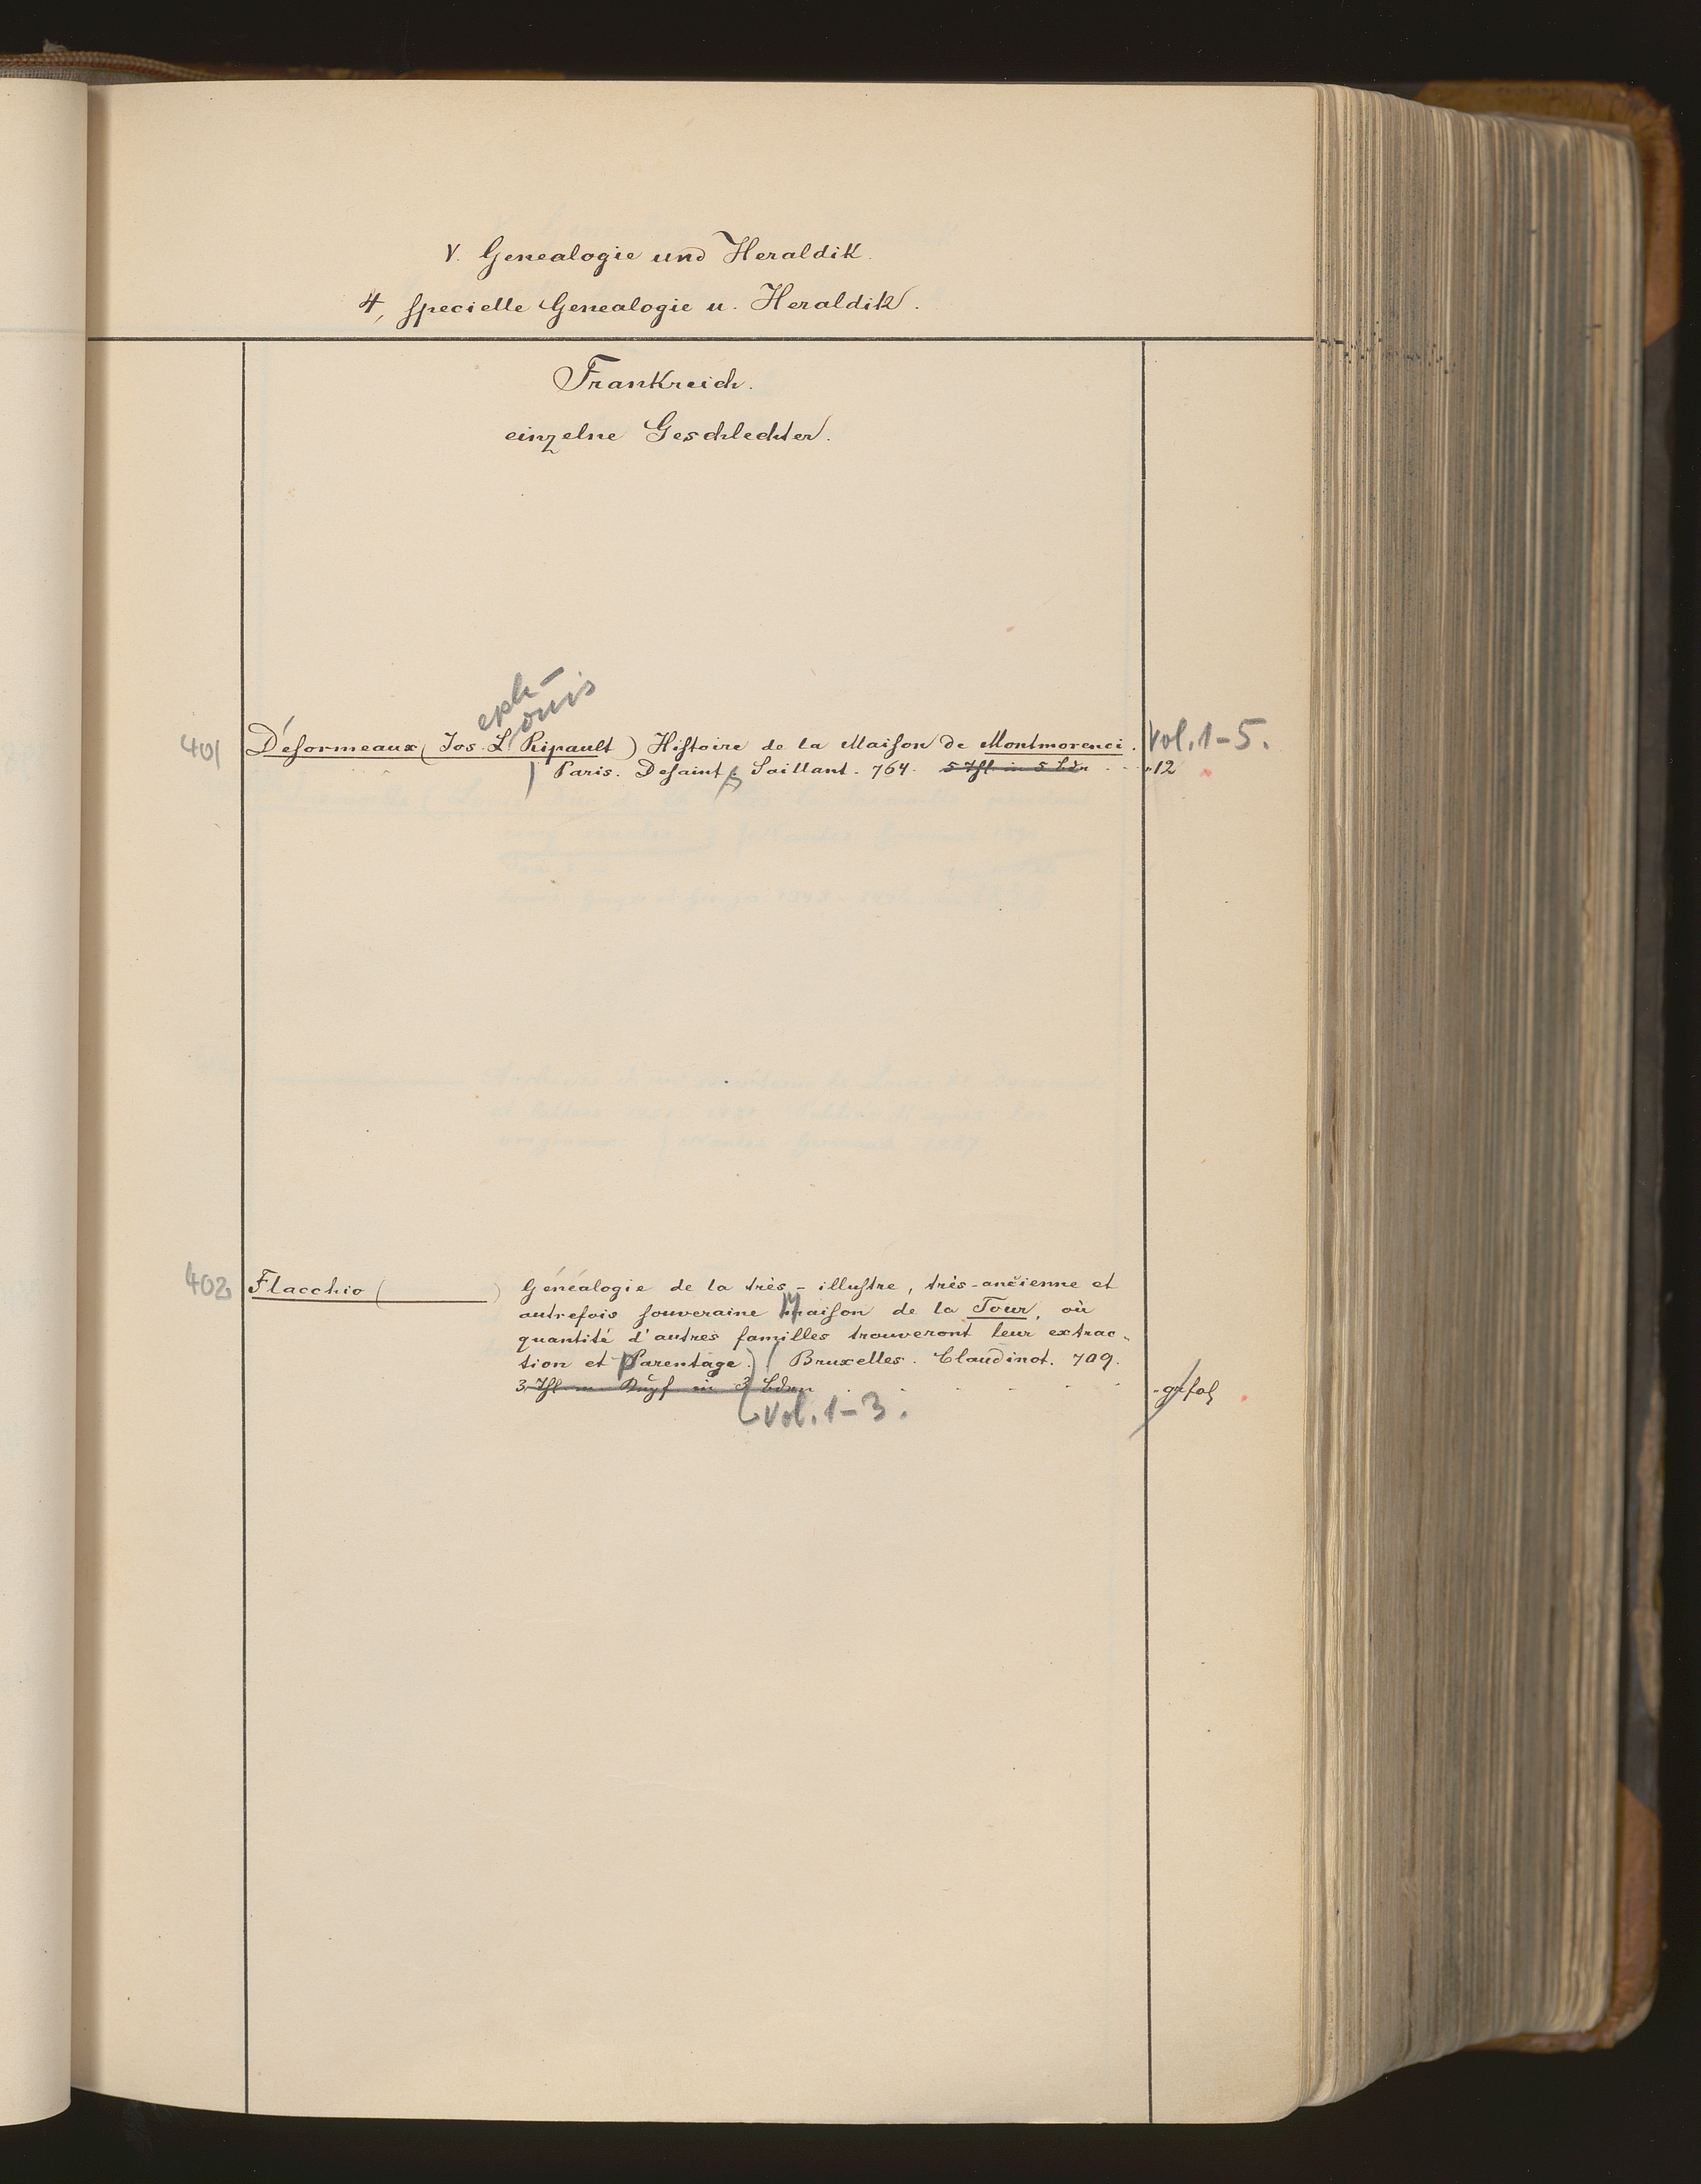 V. Genealogie und Heraldik.
4, specielle Genealogie u. Heraldik.
Frankreich.
einzelne Geschlechter.
eph-
ouis
401 Désormeaux (Jos. L. Ripault) Histoire de la Maison de Montmorenci. Vol. 1-5.
Paris. Desaint & Saillant. 764. 5 Thl. in 5 Bdn 12
402 Flacchio ( ) Généalogie de la très-illustre, très-ancienne et
autrefois souveraine Maison de la Tour, où
quantité d'autres familles trouveront leur extrac-
tion et parentage. Bruxelles. Claudinot. 709.
3 Thl m. Kupf in 3 Bdn gr fol
Vol. 1-3.